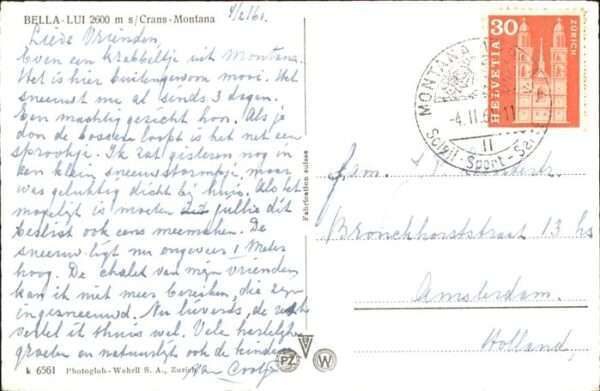 BELLA-LUI 2600 m s/Crans-Montana
4/2/61.
Lieve Vrienden,
Even een krabbeltje uit Montana.
Het is hier buitengewoon mooi. Het
sneeuwt nu al sinds 3 dagen.
Een machtig gezicht hoor. Als je
don de bossen loopt is het net een
sprookje. Ik zat gisteren nog in
een klein sneeuwstormpje, maar
was gelukkig dicht bij huis. Als het
mogelijk is moeten jullie dit
beslist ook eens meemaken. De
sneeuw ligt nu ongeveer 1 Meter
hoog. De chalet van mijn vrienden
kan ik niet meer bereiken, die zijn
ingesneeuwd. Nu lieverds, de rest
vertel ik thuis wel. Vele hartelijke
groeten en natuurlijk ook de kinderen
van
k 6561 Photoglob-Wehrli S. A., Zurich
Fabrication suisse
PZ
W
HELVETIA
30
ZÜRICH
MONTANA
-4.II.6
11
II
Soleil-Sport-Santé
Fam.
Bronckhorststraat 13 hs
Amsterdam.
Holland.